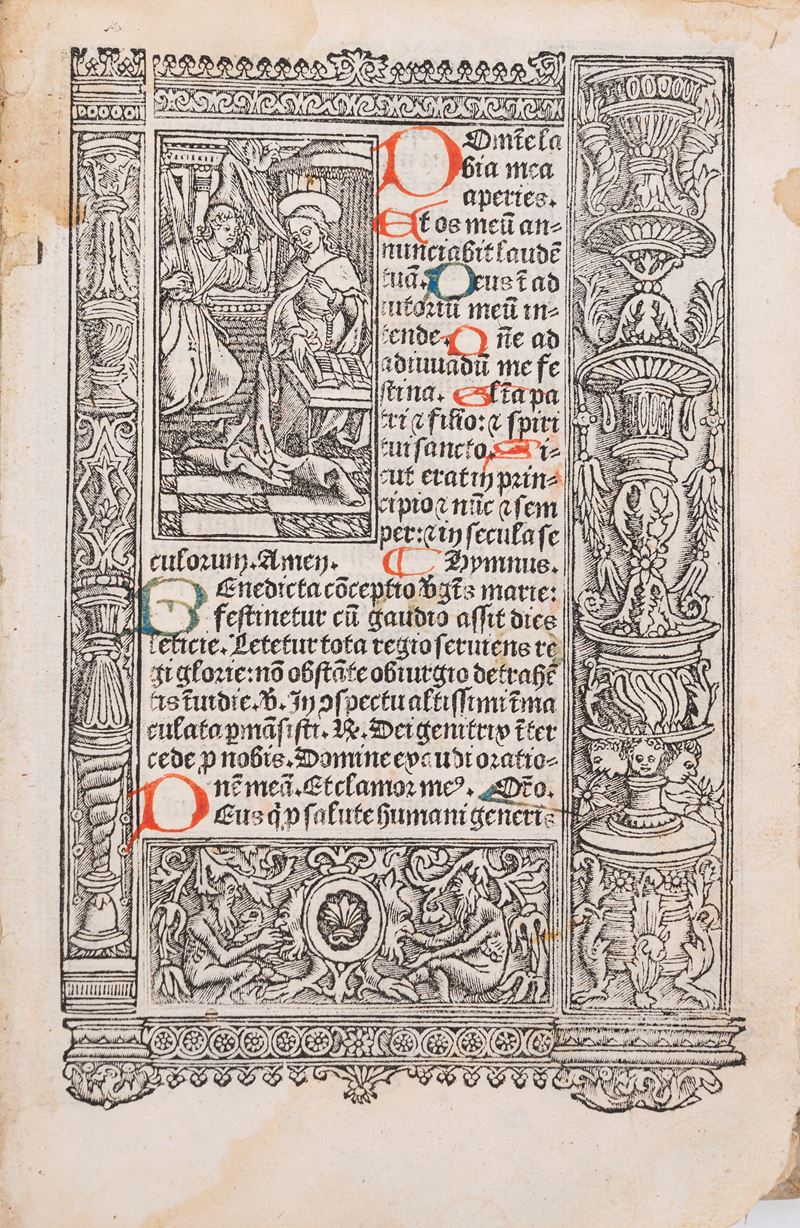 DOmīe la
bia mea
aperies.
Et os meū an=
nunciabit laudē
tuā. Deus ī ad
iutoriū meū in=
tende. Dñe ad
adiuuādū me fe
stina. Gl'ia pa
tri ⁊ filio: ⁊ spiri
tui sancto. Si=
cut erat in prin=
cipio ⁊ nūc ⁊ sem
per: ⁊ in secula se
culorum. Amen. Hymnus.
BEnedicta cōceptio v̄gīs marie:
festinetur cū gaudio assit dies
leticie. Letetur tota regio seruiens re
gi glorie: nō obstāte obiurgio detrahē
tis īuidie. V̄. In ↄspectu altissimi īma
culata ꝑmāsisti. R̄. Dei genitrix īter
cede ꝓ nobis. Domine exaudi oratio=
nē meā. Et clamor meꝰ. Orō.
DEus q̇ ꝓ salute humani generis